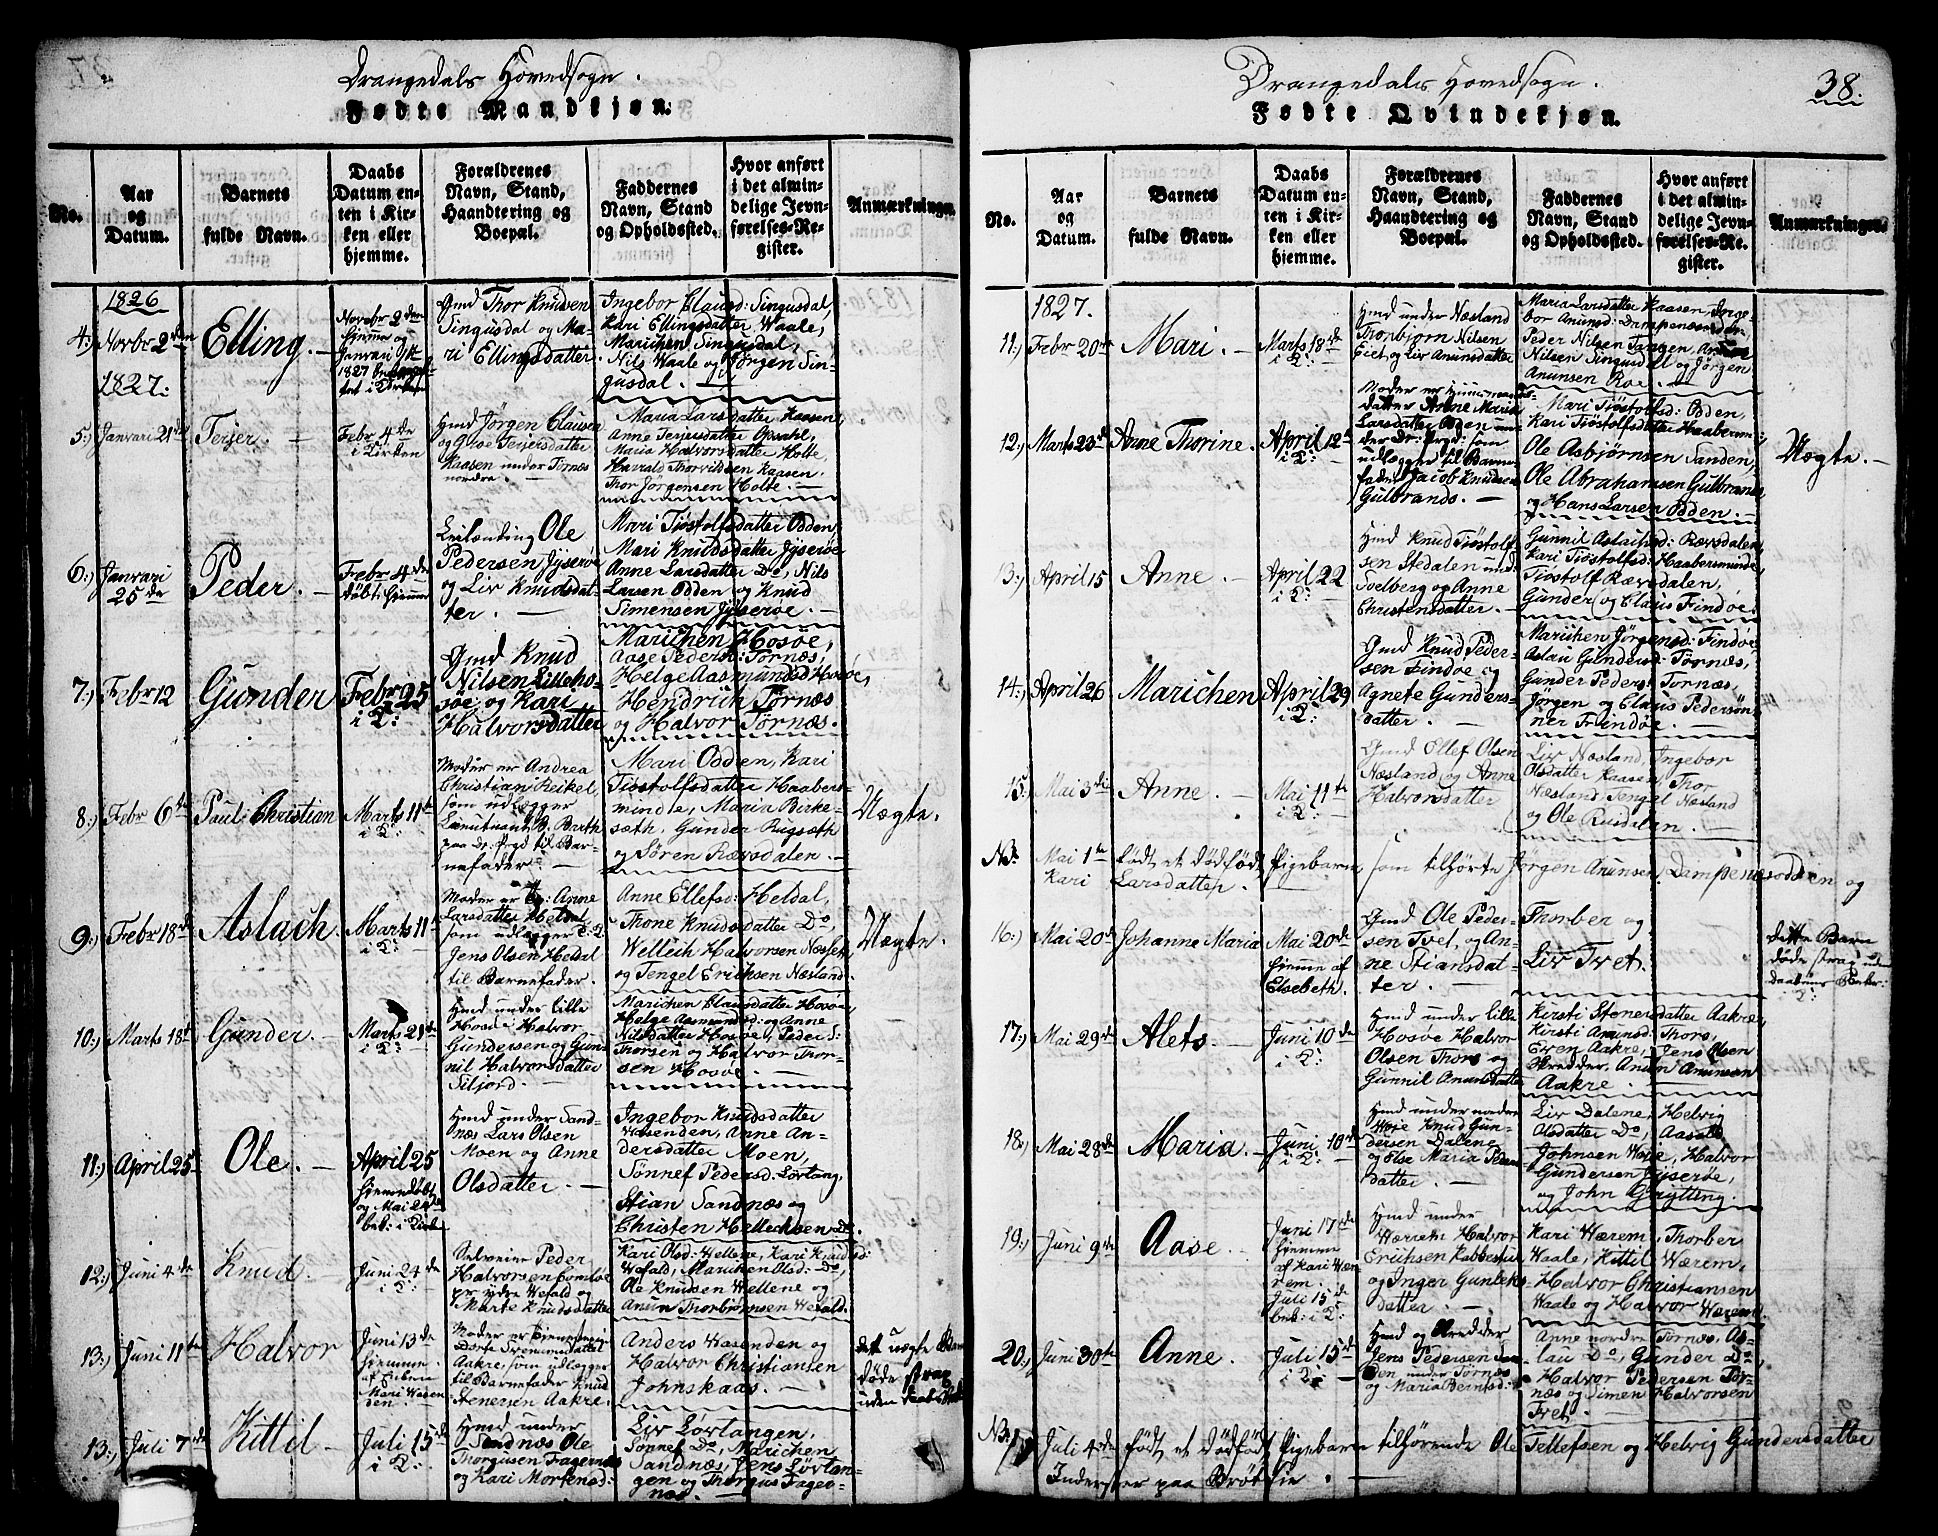 Drangedals Hovedsogn.
Fødte Mandkjøn.
No.
Aar og Datum.
Barnets fulde Navn.
Daabs Datum enten i Kirken eller hjemme.
Forældrenes Navn, Stand, Haandtering og Boepæl.
Faddernes Navn, Stand og Opholdssted.
Hvor anført i det almindelige Jevnførelses-Register.
Anmærkninger.
1826
4.) Novbr 2den
Elling. —
Novbr 2den
hjemme og
Janvari 9
1827
Gmd Thor Knudsen
Singusdal og Ma-
ri Ellingsdatter
Ingebor Clausd: Singusdal,
Kari Ellingsdatter Waale,
Marichen Singusdal,
Nils Waale og Jørgen Sin-
gusdal. —
1827.
5.) Janvari 21de
Terjer. —
Febr 4de
i Kirken
Hmd Jörgen Clausen
og Groe Terjersdatter
Kaasen under Tornæs
nordre. —
Maria Larsdatter Kaasen,
Anne Terjersdatter Opsahl,
Maria Halvorsdatter Holte,
Harrald Thorrildsen Kaasen,
Thor Jørgensen Holte. —
6.) Janvari
25de
Peder. —
Febr 4de
döbt: hjemme
Leilænding Ole
Pedersen Jyserøe
og Liv Knudsdat-
ter. —
Mari Tiøstolfsdatter Odden,
Mari Knudsdatter Jyserøe
Anne Larsdatter Do, Nils
Larsen Odden og Knud
Simensen Jyserøe. —
7.) Febr 12
Gunder
Febr 25
i K:
Gmd Knud
Nilsen Lilleho-
søe og Kari
Halvorsdatter
Marichen Hosøe,
Aase Pedersd: Tornæs,
Helge Aasmundsd Hosøe,
Hendrich Tørnæs
og Halvor Tørnæs.
8.) Febr 6te
Paul Christian
Marts 11te
i K:
Moder er Andrea
Christian Keikel,
som udlægger
Lieutnant B. Barth
paa Dr: Prgd til Bar-
nefader —
Mari Odden, Kari
Tiøstolfsdatter Haabers-
mindte, Maria Birke-
sæth, Gunder Rugsæth
og Søren Rævsdalen. —
Uægte.
9.) Febr 18de
Aslach.
Marts 11
i K:
Moder er Anne
Larsdatter Heldal
som udlægger
Jens Olsen Heldal
til Barnefader.
Anne Ellefsd: Heldal,
Thone Knudsdatter Do,
Welleich Halvorsen Næsset
og Tengel Erichsen Næsland.
Uægte.
10.) Marts 18de
Gunder. —
Marts 21de
i K:
Hmd under lille
Hosöe Halvor
Gundersen og Gun-
nil Halvorsdatter
Siljord. —
Marichen Clausdatter Hosöe,
Helge Aasmundsd: og Anne
Nilsdatter Hosöe, Peder S:
Thorsen og Halvor Thor-
sen Hosöe. —
11.) April 25
Ole. —
April 25
hjemmedöbt
og Mai 24
bek: i Kirken
Hmd under Sand-
næs Lars Olsen
Moen og Anne
Olsdatter. —
Ingebor Knudsdatter
Wasenden, Anne An-
dersdatter Moen,
Sønnef Pedersd: Lørtang,
Stian Sandnæs og
Christen Hellechsen Do
12.) Juni 4de
Knud. —
Juni 24de
i K:
Selveier Peder
Halvorsen
pr: ydre Wefald og
Marte Knudsdatter
Kari Olsd: Wellene, Kari Knudsd:
Wefald, Marichen Olsd: Do,
Ole Knudsen Wellene og
Anun Thorbjørnsen Wefald.
13.) Juni 11te
Halvor
Juni 13de
hjemme
Mari Wasen-
den.
Moder er
Aakre, som udlægger
til Barnefader Knud
Stenersen Aakre.
Anders Wasenden og
Halvor Christiansen
Johnskaas. —
det uægte Barn
døde strax
uden
13.) Juli 7de
Kittil —
Juli 15de
i K:
Hmd under
Sandnæs Ole
Thorgusen Fagernæs
og Kari Mortensd:
Liv Lørtangen,
Sønnef Do, Marichen
Sandnæs, Jens Lørtan-
gen og Thorgus Fager-
næs. —
Drangedals Hovedsogn.
38.
Fødte Qvindekjøn.
No.
Aar og Datum.
Barnets fulde Navn.
Daabs Datum enten i Kirken eller hjemme.
Forældrenes Navn, Stand, Haandtering og Boepæl.
Faddernes Navn, Stand og Opholdssted.
Hvor anført i det almindelige Jevnførelses-Register.
Anmærkninger.
1827.
11.) Febr 20de
Mari. —
Marts 18de
i K:
Hmd under Næsland
Thorbjørn Nilsen
Eiet, og Liv Anunsdatter
Maria Larsdatter Kaasen, Inge-
bor Anunsd: Dampenesodden
Peder Nilsen Tangen,
Nilsen Singusdal og Jörgen
Anunsen Roe. —
12.) Marts 23de
Anne Thorine.
April 12te
i K:
Moder er Huusmands
datter Anne Maria
Larsdatter Odden un-
der Dr: Prgd: som
udlægger til Barne-
fader Jacob Knudsen
Gulbrands. —
Mari Tiøstolfsd: Odden,
Kari Tiøstolfsdatter Haabersm:
Ole Asbjørnsen Sanden,
Ole Abrahamsen Gulbrands
og Hans Larsen Odden. —
Uægte. —
13.) April 15
Anne. —
April 22
i K:
Hmd Knud Tiøstolf-
sen Stedalen und:
Svelberg og Anne
Christensdatter. —
Gunnil Aslachsd: Rævsdalen,
Kari Tiøstolfsd: Haabersmunde,
Tiøstolf Rævsdalen,
Gunder og Claus Findöe.
14.) April 26
Marichen
April 29
i K:
Gmd Knud Peder-
sen Findøe og
Agnete Gunders-
datter. —
Marichen Jørgensd: Findøe,
Aslau Gundersd: Tornæs,
Gunder Peders: Tornæs,
Jørgen og Claus Pedersøn-
ner Findøe. —
15.) Mai 3die
Anne. —
Mai 11te
i K:
Gmd Ellef Olsen
Næsland og Anne
Halvorsdatter
Liv Næsland, Ingebor
Olsdatter Kaasen, Thor
Næsland Tengel Næsland
og Ole Rusdalen. —
NB. Mai 1te födt et dödfödt Pigebarn, som tilhørte Jørgen Anunsen Dampenesodden og
Kari Larsdatter.
16.) Mai 20de
Johanne Maria
Mai 20de
hjemme af
Elsebeth.
Gmd Ole Peder-
sen Tvet, og An-
ne Stiansdat-
ter. —
Thorber og
Liv Tvet.
Dette Barn
døde strax
17.) Mai 29de
Alets. —
Juni 10de
i K:
Hmd under lille
Hosöe Halvor
Olsen Thors og
Gunnil Anunsdatter
Kirsti Stenersdatter Aakre,
Kirsti Anunsd: Thors,
Even Aakre, Jens Olsen
Skredder, Anun Anunsen
Aakre. —
18.) Mai 28de
Maria. —
Juni 10de
i K:
Hmd under nordre
Woje Knud Gun-
dersen Dalene
og Else Maria Peders-
datter. —
Liv Dalene, Helvig
Olsdatter Do, Aasold
Johnsen Woje, Halvor
Gundersen Jyserøe,
og John Grytting. —
19.) Juni 9de
Aase. —
Juni 17de
hjemme
af Kari Wæ-
rem.
Juli 15de
bek: i K:
Hmd under
Wærem Halvor
Erichsen Kabbestul
og Inger Gunleks-
datter. —
Kari Wærem, Thorber
Waale, Kittil Wærem,
Halvor Christiansen
Waale og Halvor Wærem
20.) Juni 30te
Anne. —
Juli 15de
i K:
Hmd og Skredder
Jens Pedersen
under Tornæs
og Maria Berntsd:
Anne nordre Tornæs, As-
lau Do, Gunder Do
Halvor Pedersen Tor-
næs og Simen Halvorsen
Tvet. —
NB. Juli 4de födt et dödfödt Pigebarn tilhörende Ole Tellefsen og Helvig Gundersdatter
Inderster paa Brødsöe. —